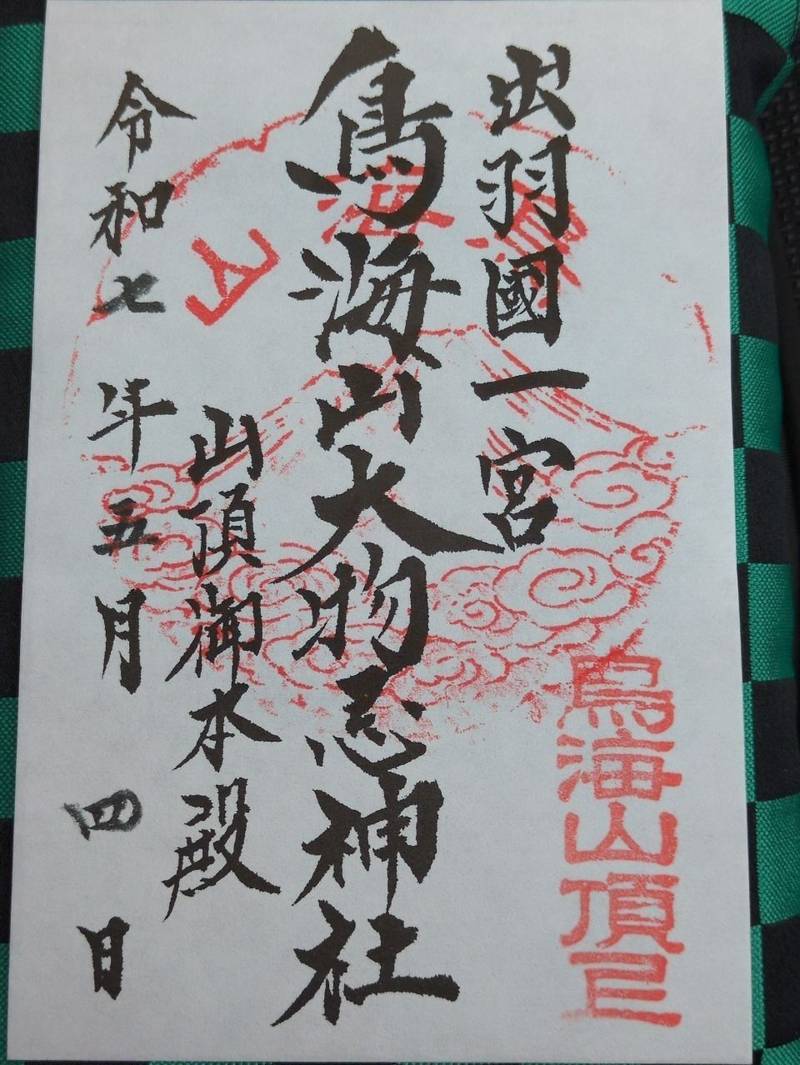 出羽國一宮
鳥海山大物忌神社
山頂御本殿
令和七年五月四日
鳥海山
鳥海山頂